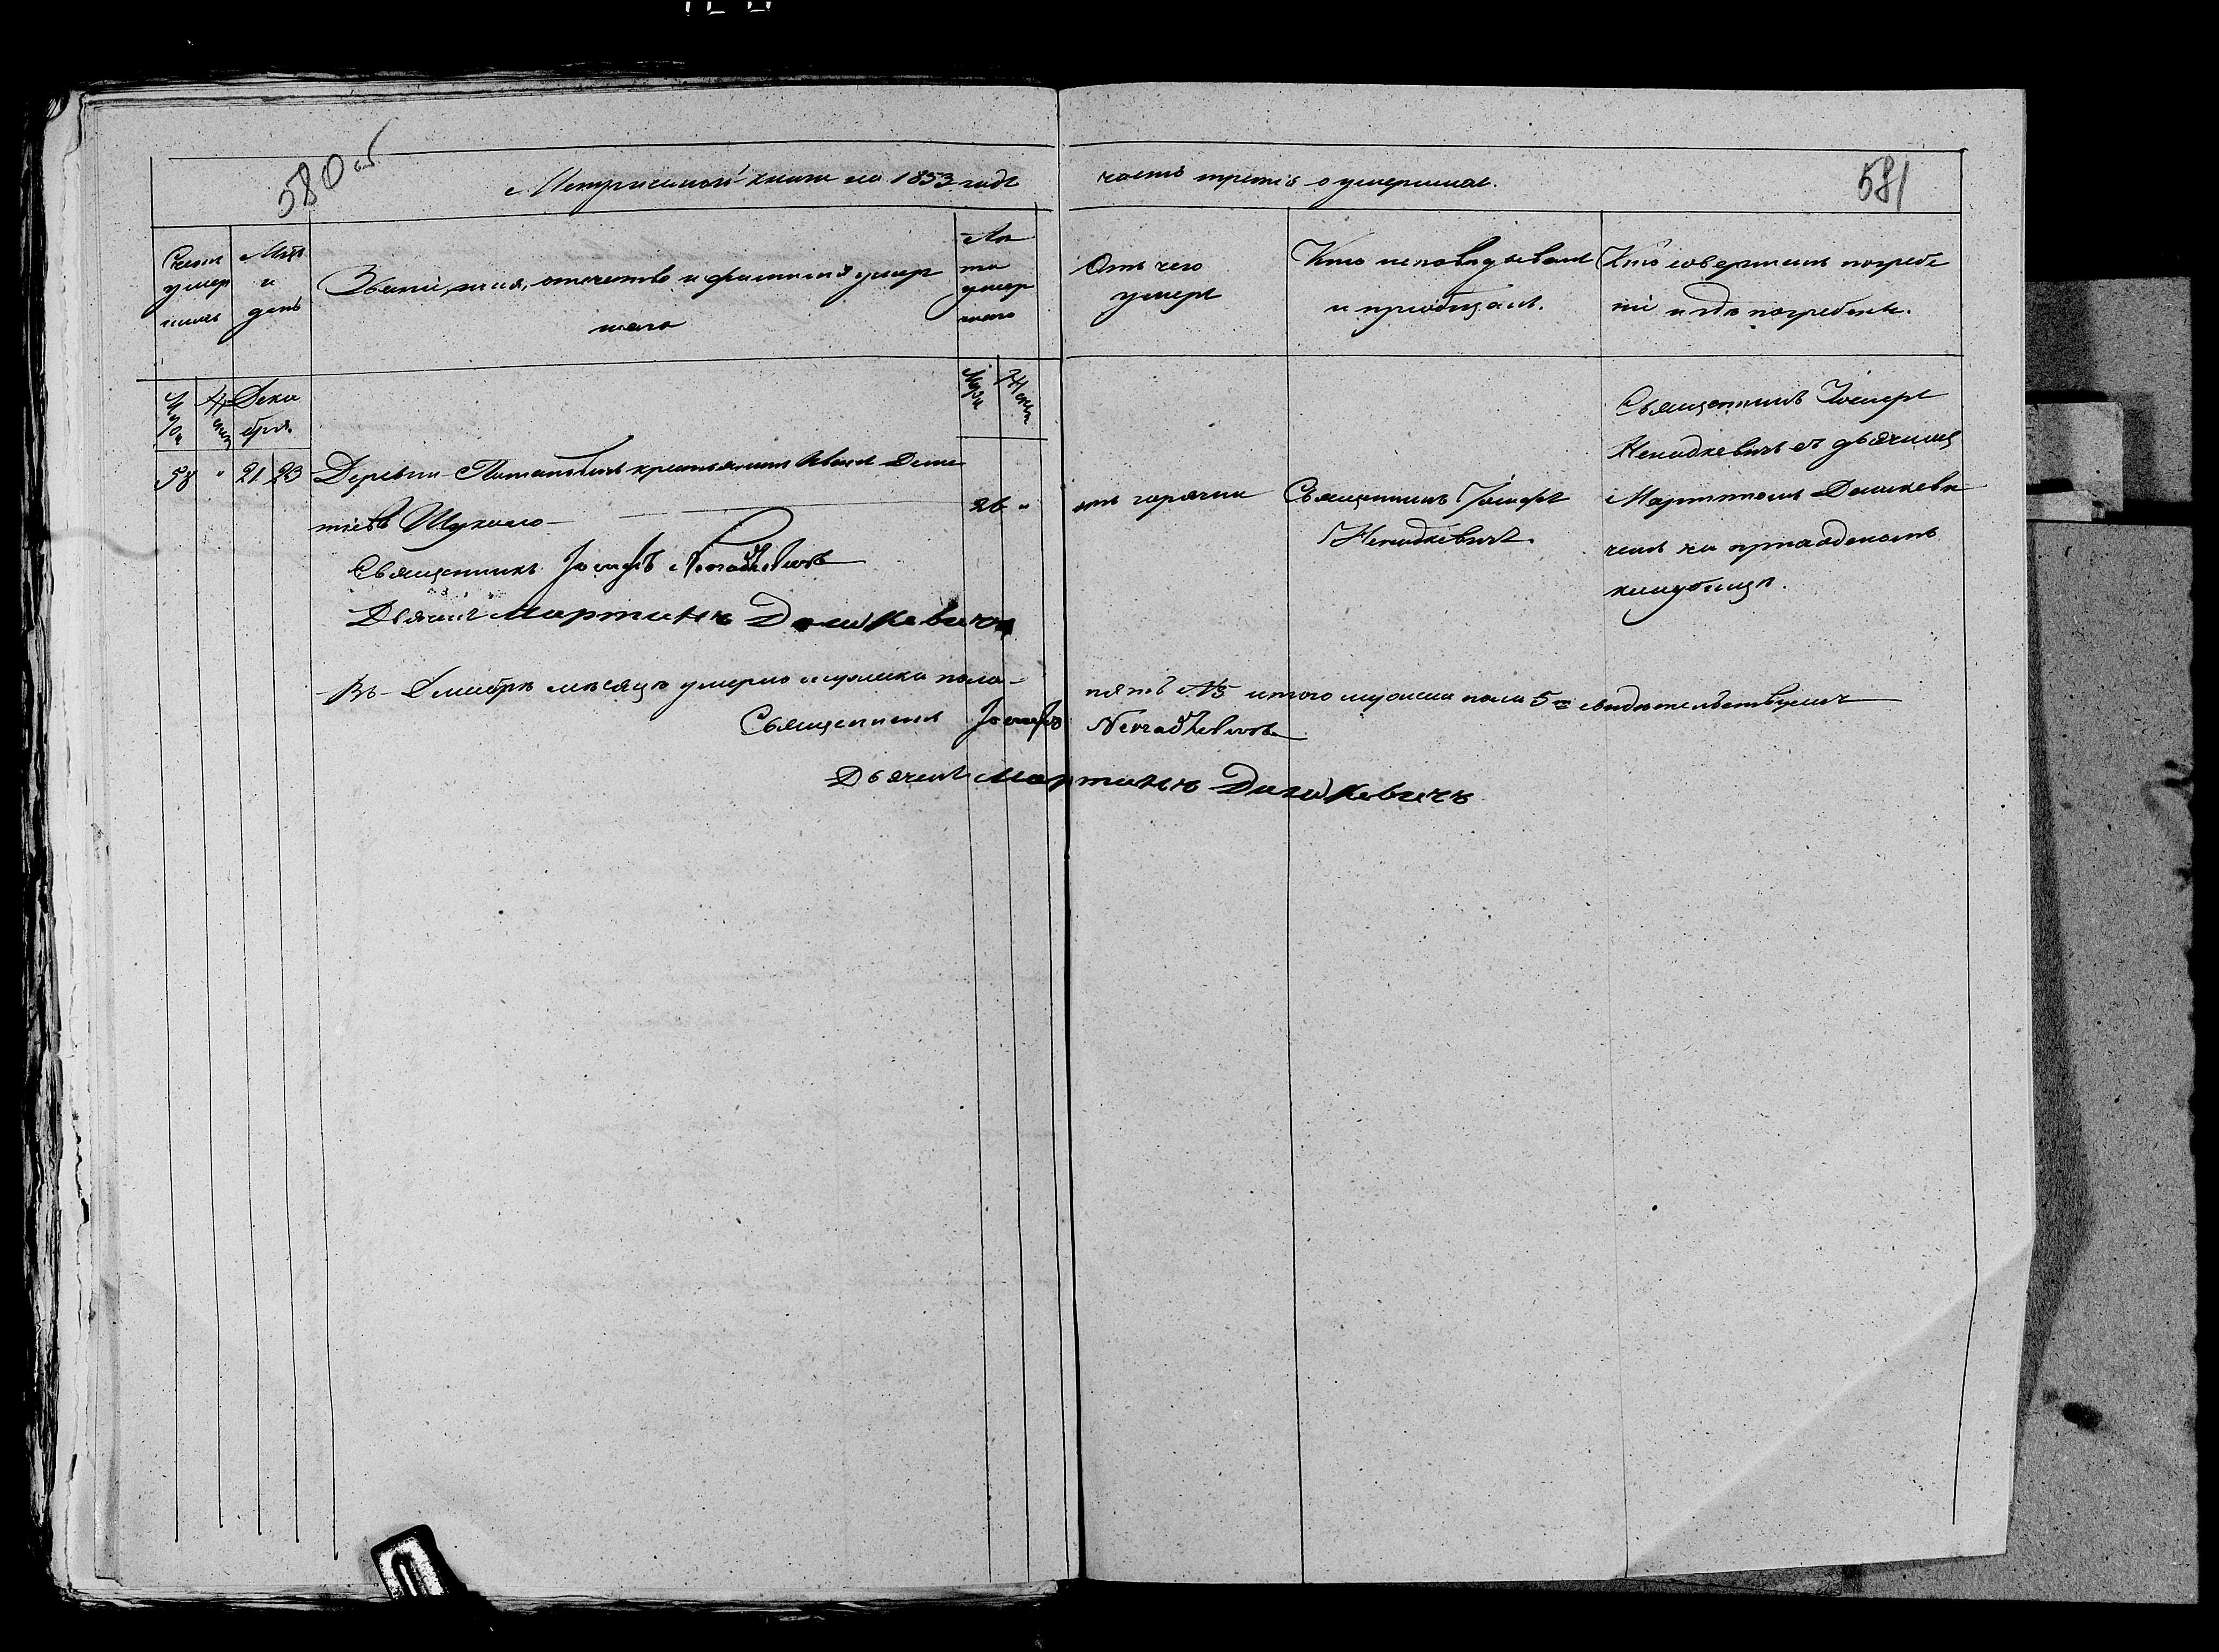 580 об
Метрической книги на 1853 годъ
часть третія о умершихъ.
581
Счетъ умер шихъ
Мѣс и день
Званіе, имя, отчество и фамилія умер
шаго
Лѣ та умер шаго
Отъ чего
умеръ
Кто исповѣдывалъ
и пріобщалъ.
Кто совершалъ погребе
ніе и гдѣ погребены.
Муж
Жен
Дека
бря.
Муж
Жен
58 " 21 23
Деревни крестьянинъ Иванъ Деме
тіевъ Шукало
26 "
отъ горячки
Священникъ Іосифъ
Ненадкевичъ.
Священникъ Іосифъ
Ненадкевичъ съ дьячкомъ
Мартиномъ Дашкеви
чемъ на приходскомъ
кладбищѣ.
Священникъ Іосифъ Ненадкевичъ
Дьячекъ Мартинъ Дашкевичъ
Въ Декабрѣ мѣсяцѣ умерло мужска пола
пять №5 итого мужска пола 5 = свидѣтельствуемъ
Священникъ Іосифъ Ненадкевичъ
Дьячекъ Мартинъ Дашкевичъ